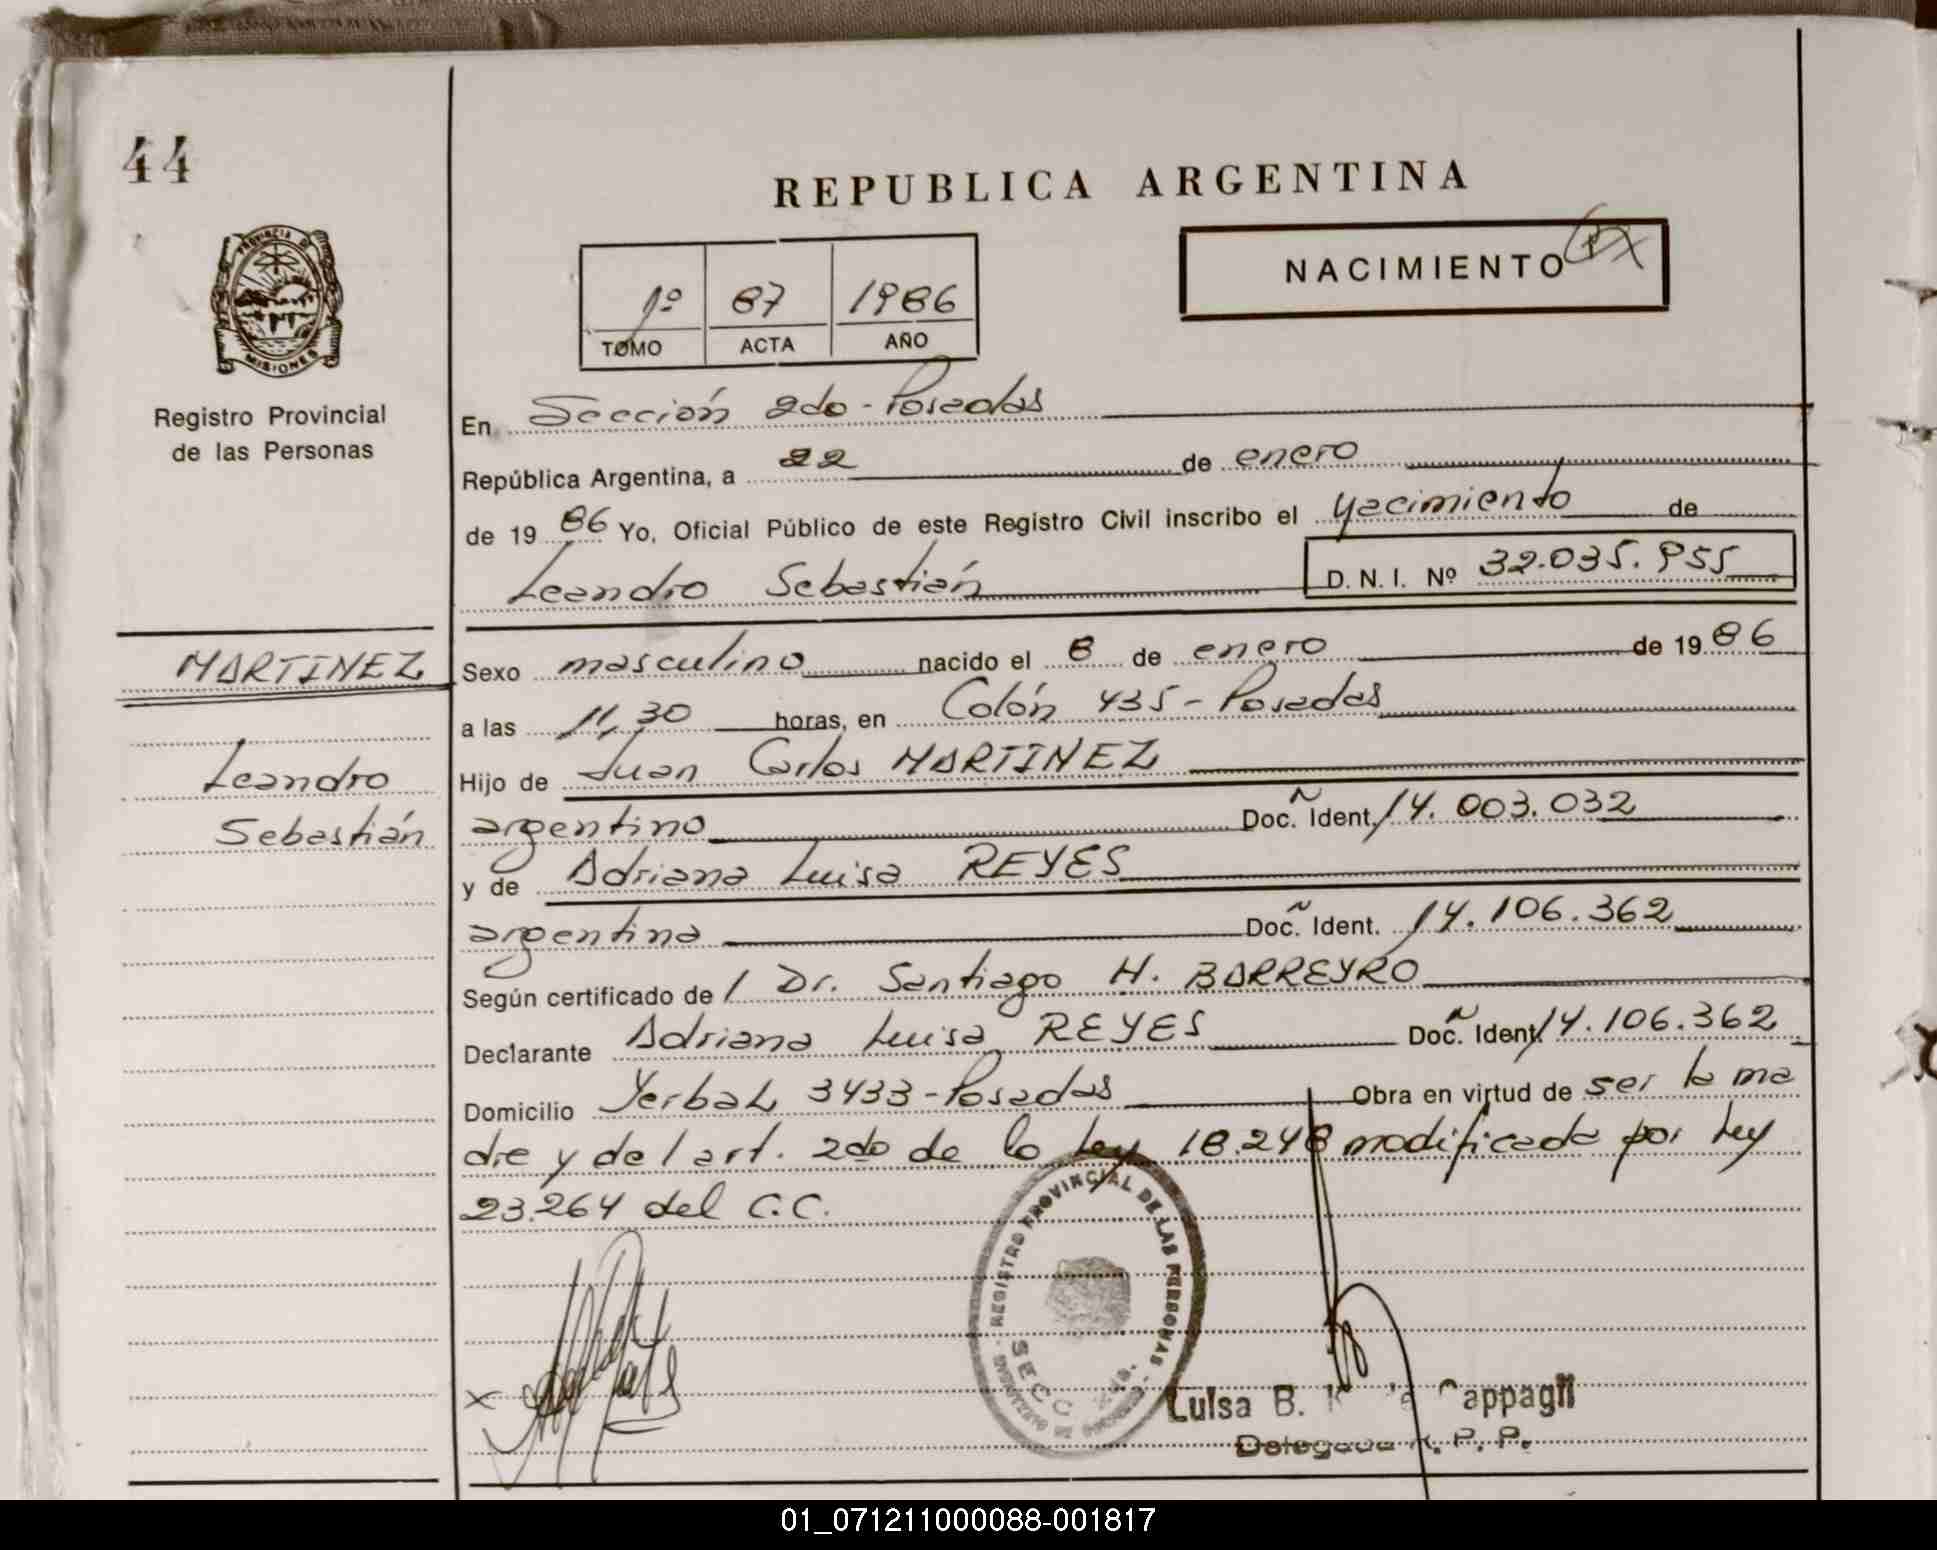 44
REPUBLICA ARGENTINA
PROVINCIA DE
MISIONES
Registro Provincial
de las Personas
1º 87 1986
TOMO ACTA AÑO
NACIMIENTO
En Sección 2do - Posadas
República Argentina, a 22 de enero
de 1986 Yo, Oficial Público de este Registro Civil inscribo el Nacimiento de
Leandro Sebastián D. N. I. Nº 32.035.955
MARTINEZ
Leandro
Sebastián
Sexo masculino nacido el 8 de enero de 1986
a las 11,30 horas, en Colón 435 - Posadas
Hijo de Juan Carlos MARTINEZ
argentino Doc. Ident. 14.003.032
y de Adriana Luisa REYES
argentina Doc. Ident. 14.106.362
Según certificado del Dr. Santiago H. BARREYRO
Declarante Adriana Luisa REYES Doc. Ident. 14.106.362
Domicilio Yerbal 3433 - Posadas Obra en virtud de ser la ma
dre y del art. 2do de la Ley 18.248 modificada por Ley
23.264 del C.C.
REGISTRO PROVINCIAL DE LAS PERSONAS
SECC
Luisa B. Cappagli
Delegada R. P. P.
01_071211000088-001817